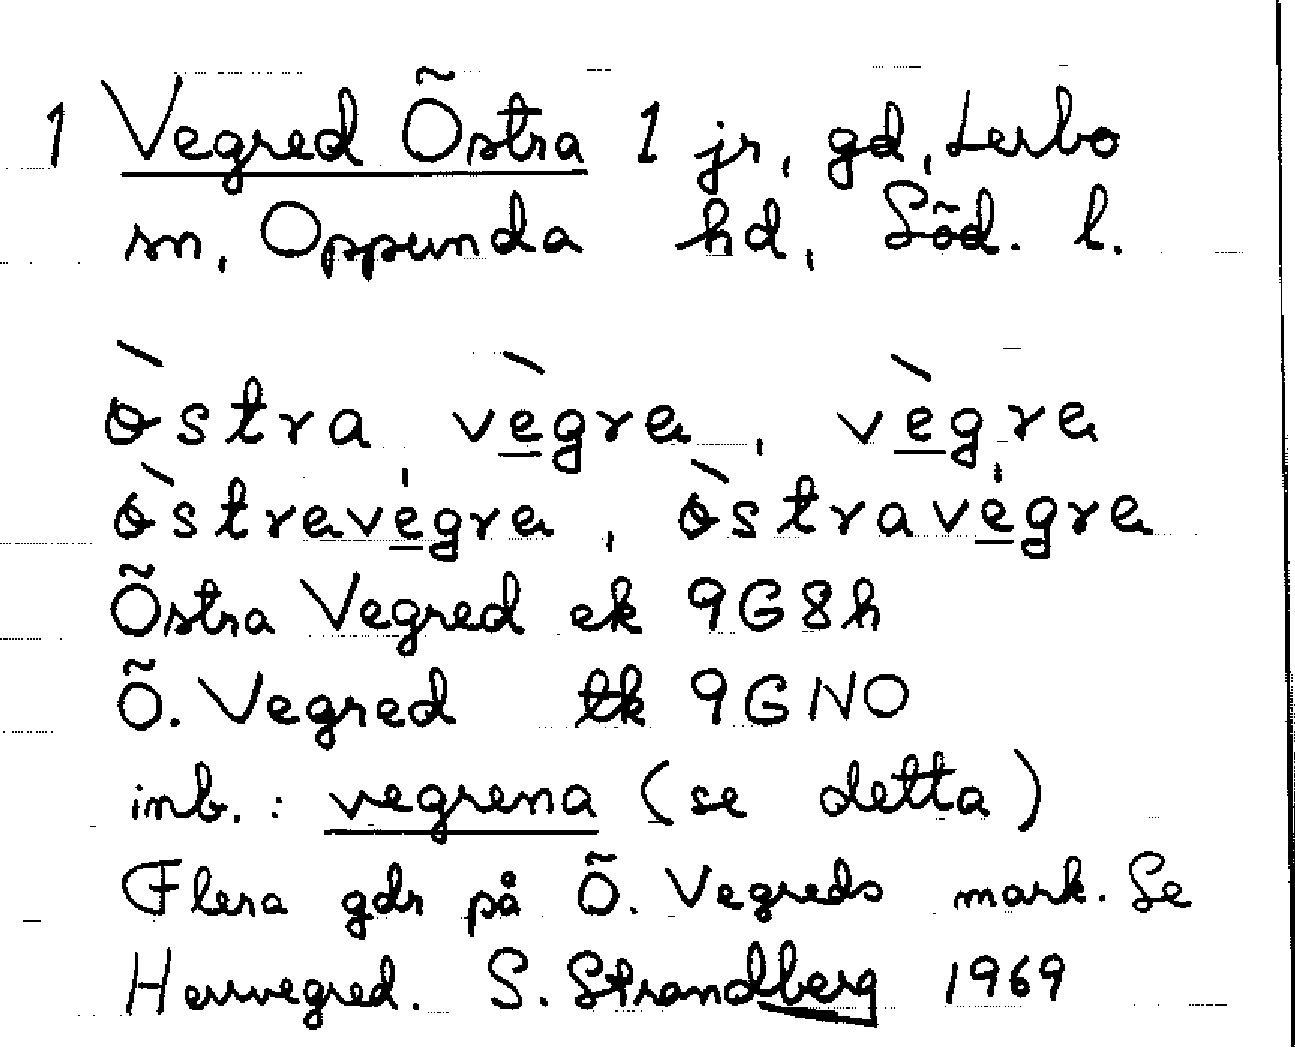 1 Vegred Östra 1 jr, gd, Lerbo
sn, Oppunda hd, Söd. l.
ò̀stra vè̀gra, vè̀gra
ò̀stravégra, ò̀stravégra
Östra Vegred ek 9G8h
Ö. Vegred tk 9GNO
inb.: vegrena (se detta)
Flera gdr på Ö. Vegreds mark. Se
Herrvegred. S. Strandberg 1969